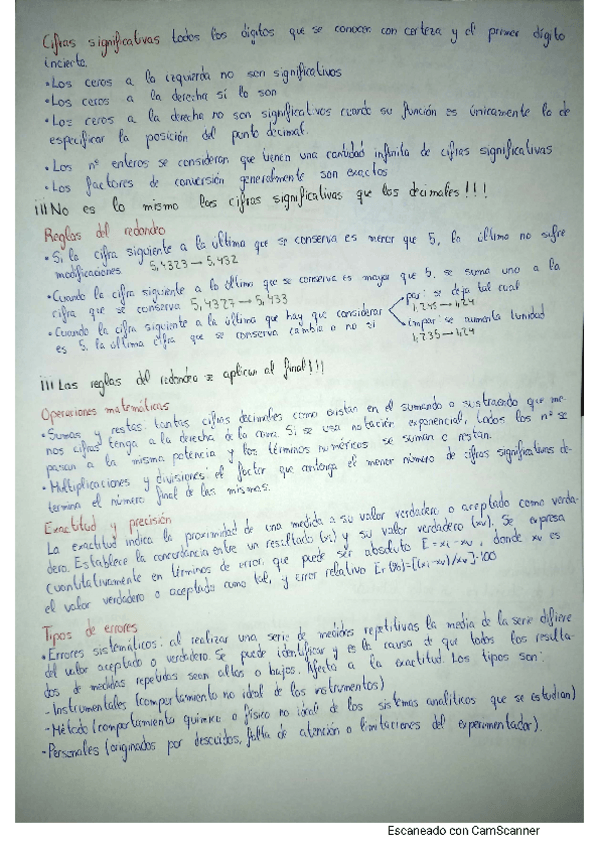 Cifras significativas todos los dígitos que se conocen con certeza y el primer dígito
incierto.
• Los ceros a la izquierda no son significativos
• Los ceros a la derecha sí lo son
• Los ceros a la derecha no son significativos cuando su función es únicamente la de
especificar la posición del punto decimal.
• Los nº enteros se consideran que tienen una cantidad infinita de cifras significativas
• Los factores de conversión generalmente son exactos
¡¡¡No es lo mismo las cifras significativas que los decimales!!!
Reglas del redondeo
• Si la cifra siguiente a la última que se conserva es menor que 5, la última no sufre
modificaciones 5,4323 → 5,432
• Cuando la cifra siguiente a la última que se conserva es mayor que 5, se suma uno a la
cifra que se conserva 5,4327 → 5,433
par: se deja tal cual
1,245 → 1,24
• Cuando la cifra siguiente a la última que hay que considerar
es 5, la última cifra que se conserva cambia o no si
impar: se aumenta 1 unidad
1,235 → 1,24
¡¡¡Las reglas del redondeo se aplican al final!!!
Operaciones matemáticas
• Sumas y restas: tantas cifras decimales como existan en el sumando o sustraendo que me-
nos cifras tenga a la derecha de la coma. Si se usa notación exponencial, todos los nº se
pasan a la misma potencia y los términos numéricos se suman o restan.
• Multiplicaciones y divisiones: el factor que contenga el menor número de cifras significativas de-
termina el número final de las mismas.
Exactitud y precisión
La exactitud indica la proximidad de una medida a su valor verdadero o aceptado como verda-
dero. Establece la concordancia entre un resultado (xi) y su valor verdadero (xv). Se expresa
cuantitativamente en términos de error, que puede ser absoluto E = xi - xv , donde xv es
el valor verdadero o aceptado como tal, y error relativo Er(%)=[(xi-xv)/xv]·100
Tipos de errores
• Errores sistemáticos: al realizar una serie de medidas repetitivas la media de la serie difiere
del valor aceptado o verdadero. Se puede identificar y es la causa de que todos los resulta-
dos de medidas repetidas sean altos o bajos. Afecta a la exactitud. Los tipos son:
- Instrumentales (comportamiento no ideal de los instrumentos)
- Método (comportamiento químico o físico no ideal de los sistemas analíticos que se estudian)
- Personales (originados por descuidos, falta de atención o limitaciones del experimentador).
Escaneado con CamScanner